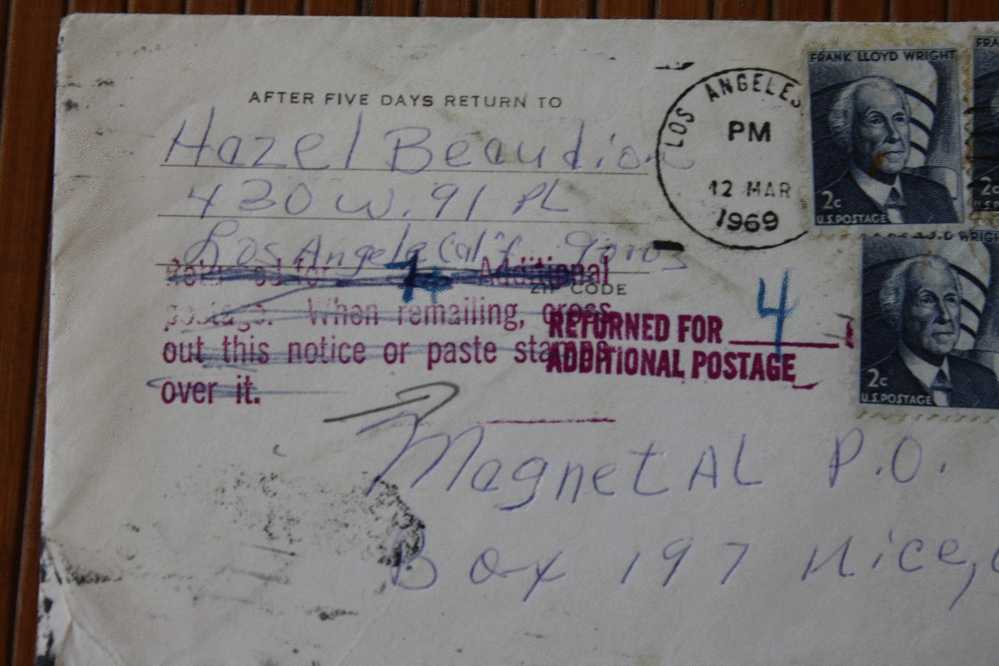 AFTER FIVE DAYS RETURN TO
Hazel Beaudion
430 W. 91 PL
Los Angele Calif. 90003
ZIP CODE
LOS ANGELES
PM
12 MAR
1969
FRANK LLOYD WRIGHT
2c
U.S. POSTAGE
FRA
2c
U.S.
WRIGH
2c
U.S. POSTAGE
Returned for 4 Additional
postage. When remailing, cross
out this notice or paste stamps
over it.
RETURNED FOR 4
ADDITIONAL POSTAGE
Magnet AL P.O.
Box 197 Nice,